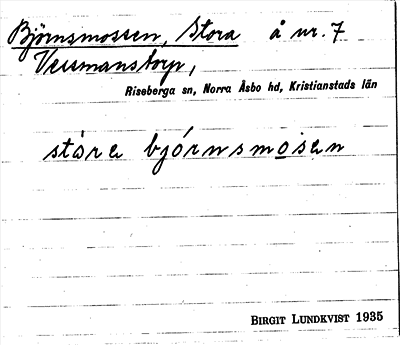 Björnsmossen, Stora å nr. 7
Vessmanstorp,
Riseberga sn, Norra Åsbo hd, Kristianstads län
stóra bjórnsmosen
BIRGIT LUNDKVIST 1935